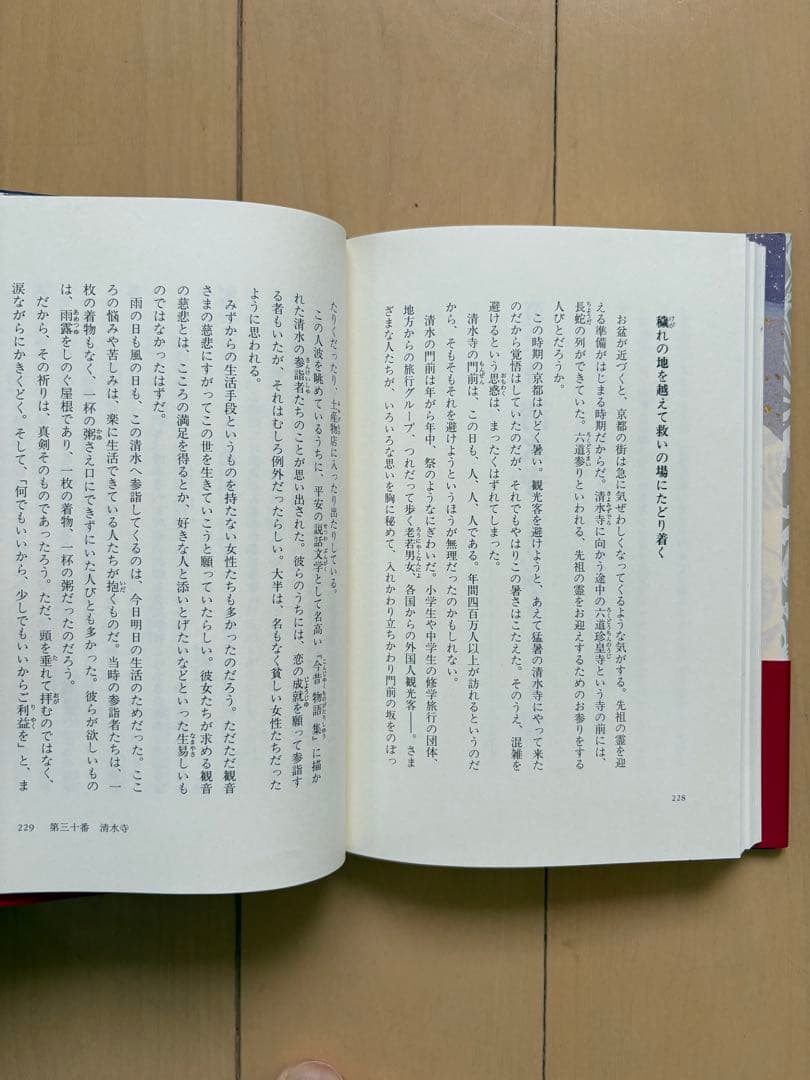 穢れの地を越えて救いの場にたどり着く
お盆が近づくと、京都の街は急に気ぜわしくなってくるような気がする。先祖の霊を迎
える準備がはじまる時期だからだ。清水寺に向かう途中の六道珍皇寺という寺の前には、
長蛇の列ができていた。六道参りといわれる、先祖の霊をお迎えするためのお参りをする
人びとだろうか。
この時期の京都はひどく暑い。観光客を避けようと、あえて猛暑の清水寺にやって来た
のだから覚悟はしていたのだが、それでもやはりこの暑さはこたえた。そのうえ、混雑を
避けるという思惑は、まったくはずれてしまった。
清水寺の門前は、この日も、人、人、人である。年間四百万人以上が訪れるというのだ
から、そもそもそれを避けようというほうが無理だったのかもしれない。
清水の門前は年がら年中、祭のようなにぎわいだ。小学生や中学生の修学旅行の団体、
地方からの旅行グループ、つれだって歩く老若男女、各国からの外国人観光客――。さま
ざまな人たちが、いろいろな思いを胸に秘めて、入れかわり立ちかわり門前の坂をのぼっ
228
たりくだったり、土産物店に入ったり出たりしている。
この人波を眺めているうちに、平安の説話文学として名高い『今昔物語集』に描か
れた清水の参詣者たちのことが思い出された。彼らのうちには、恋の成就を願って参詣す
る者もいたが、それはむしろ例外だったらしい。大半は、名もなく貧しい女性たちだった
ように思われる。
みずからの生活手段というものを持たない女性たちも多かったのだろう。ただただ観音
さまの慈悲にすがってこの世を生きていこうと願っていたらしい。彼女たちが求める観音
の慈悲とは、こころの満足を得るとか、好きな人と添いとげたいなどといった生易しいも
のではなかったはずだ。
雨の日も風の日も、この清水へ参詣してくるのは、今日明日の生活のためだった。ここ
ろの悩みや苦しみは、楽に生活できている人たちが抱くものだ。当時の参詣者たちは、一
枚の着物もなく、一杯の粥さえ口にできずにいた人びとも多かった。彼らが欲しいもの
は、雨露をしのぐ屋根であり、一枚の着物、一杯の粥だったのだろう。
だから、その祈りは、真剣そのものであったろう。ただ、頭を垂れて拝むのではなく、
涙ながらにかきくどく。そして、「何でもいいから、少しでもいいからご利益を」と、ま
229 第三十番 清水寺